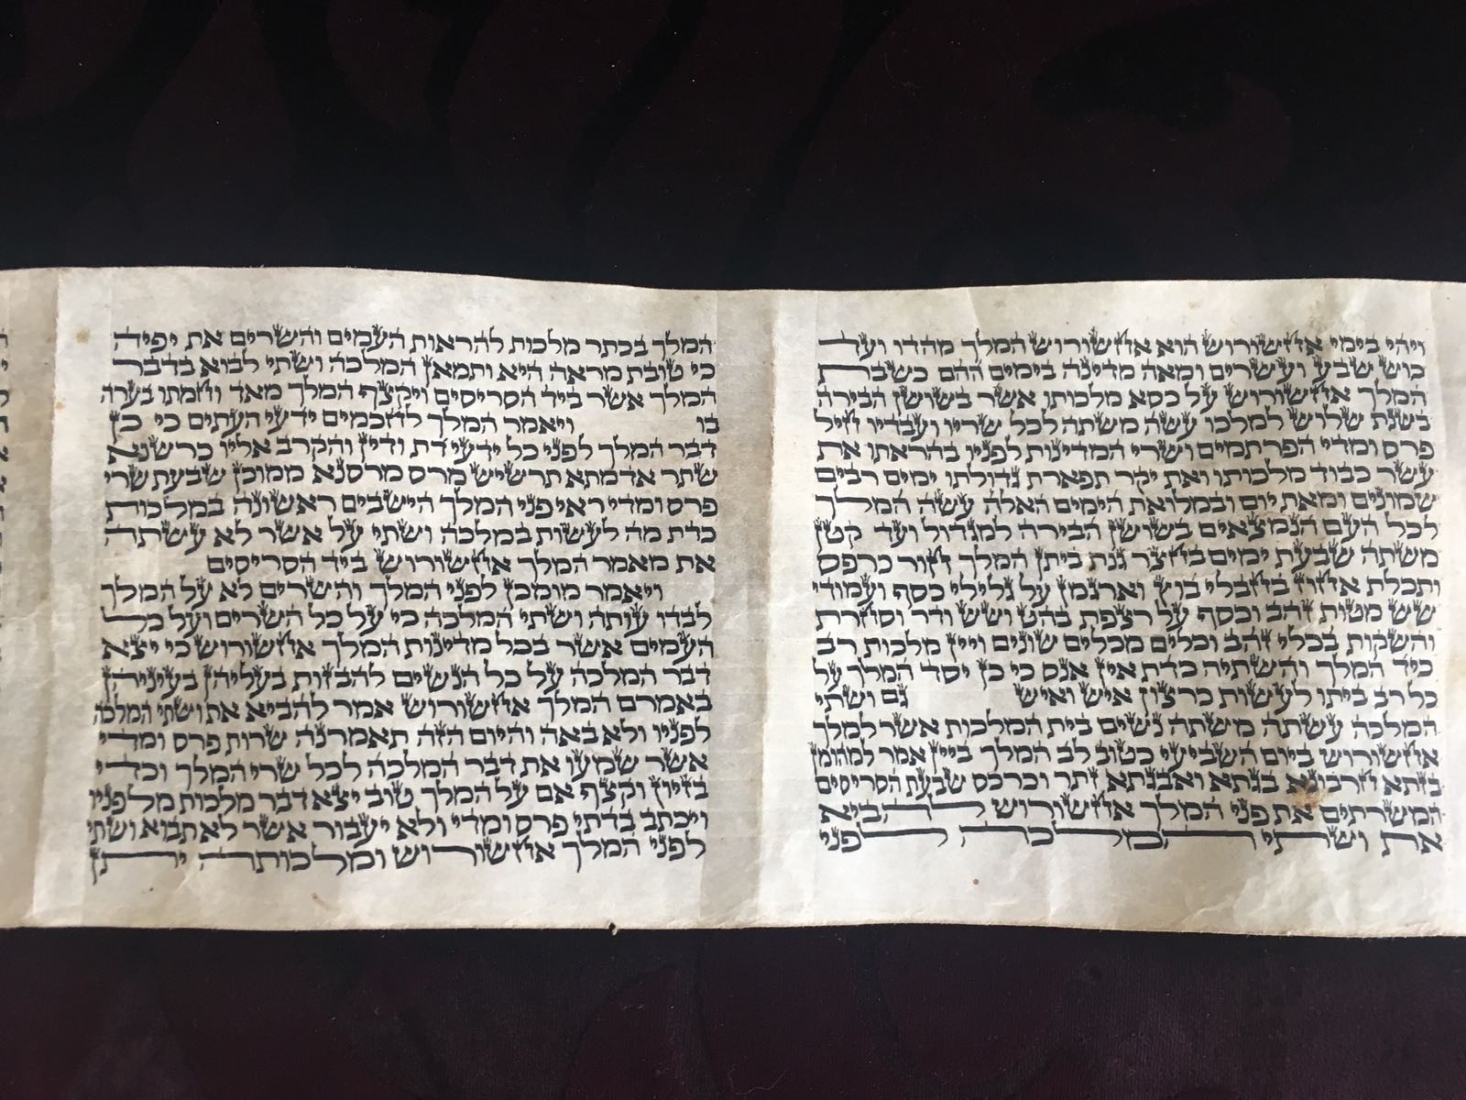 ויהי בימי אחשורוש הוא אחשורוש המלך מהדו ועד
כוש שבע ועשרים ומאה מדינה בימים ההם כשבת
המלך אחשורוש על כסא מלכותו אשר בשושן הבירה
בשנת שלוש למלכו עשה משתה לכל שריו ועבדיו חיל
פרס ומדי הפרתמים ושרי המדינות לפניו בהראתו את
עשר כבוד מלכותו ואת יקר תפארת גדולתו ימים רבים
שמונים ומאת יום ובמלואת הימים האלה עשה המלך
לכל העם הנמצאים בשושן הבירה למגדול ועד קטן
משתה שבעת ימים בחצר גנת ביתן המלך חור כרפס
ותכלת אחוז בחבלי בוץ וארגמן על גלילי כסף ועמודי
שש מטות זהב וכסף על רצפת בהט ושש ודר וסחרת
והשקות בכלי זהב וכלים מכלים שונים ויין מלכות רב
כיד המלך והשתיה כדת אין אנס כי כן יסד המלך על
כל רב ביתו לעשות כרצון איש ואיש גם ושתי
המלכה עשתה משתה נשים בית המלכות אשר למלך
אחשורוש ביום השביעי כטוב לב המלך ביין אמר למהומן
בזתא חרבונא בגתא ואבגתא זתר וכרכס שבעת הסריסים
המשרתים את פני המלך אחשורוש להביא
את ושתי המלכה לפני
המלך בכתר מלכות להראות העמים והשרים את יפיה
כי טובת מראה היא ותמאן המלכה ושתי לבוא בדבר
המלך אשר ביד הסריסים ויקצף המלך מאד וחמתו בערה
בו ויאמר המלך לחכמים ידעי העתים כי כן
דבר המלך לפני כל ידעי דת ודין והקרב אליו כרשנא
שתר אדמתא תרשיש מרס מרסנא ממוכן שבעת שרי
פרס ומדי ראי פני המלך הישבים ראשונה במלכות
כדת מה לעשות במלכה ושתי על אשר לא עשתה
את מאמר המלך אחשורוש ביד הסריסים
ויאמר מומכן לפני המלך והשרים לא על המלך
לבדו עותה ושתי המלכה כי על כל השרים ועל כל
העמים אשר בכל מדינות המלך אחשורוש כי יצא
דבר המלכה על כל הנשים להבזות בעליהן בעיניהן
באמרם המלך אחשורוש אמר להביא את ושתי המלכה
לפניו ולא באה והיום הזה תאמרנה שרות פרס ומדי
אשר שמעו את דבר המלכה לכל שרי המלך וכדי
בזיון וקצף אם על המלך טוב יצא דבר מלכות מלפניו
ויכתב בדתי פרס ומדי ולא יעבור אשר לא תבוא ושתי
לפני המלך אחשורוש ומלכותה יתן